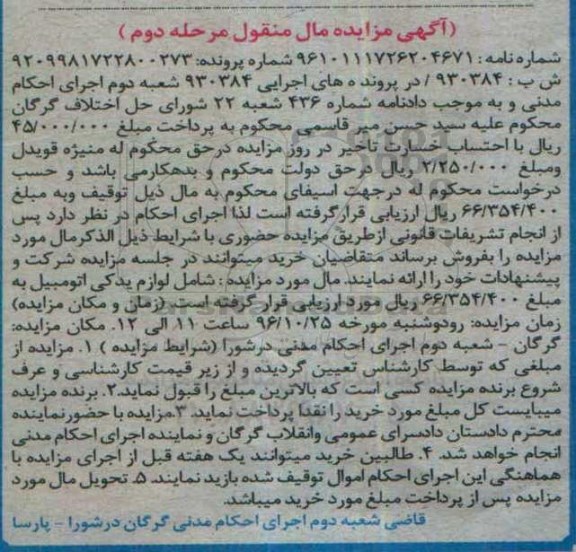 (آگهی مزایده مال منقول مرحله دوم )
شماره نامه : ۹۶۱۰۱۱۱۷۲۶۲۰۴۶۷۱ شماره پرونده: ۹۲۰۹۹۸۱۷۲۲۸۰۰۲۷۳
ش ب : ۹۳۰۳۸۴ / در پرونده های اجرایی ۹۳۰۳۸۴ شعبه دوم اجرای احکام
مدنی و به موجب دادنامه شماره ۴۳۶ شعبه ۲۲ شورای حل اختلاف گرگان
محکوم علیه سید حسن میر قاسمی محکوم به پرداخت مبلغ ۴۵/۰۰۰/۰۰۰
ریال با احتساب خسارت تاخیر در روز مزایده درحق محکوم له منیژه قویدل
ومبلغ ۲/۲۵۰/۰۰۰ ریال درحق دولت محکوم و بدهکارمی باشد و حسب
درخواست محکوم له درجهت اسیفای محکوم به مال ذیل توقیف وبه مبلغ
۶۶/۳۵۴/۴۰۰ ریال ارزیابی قرارگرفته است لذا اجرای احکام در نظر دارد پس
از انجام تشریفات قانونی ازطریق مزایده حضوری با شرایط ذیل الذکرمال مورد
مزایده را بفروش برساند متقاضیان خرید میتوانند در جلسه مزایده شرکت و
پیشنهادات خود را ارائه نمایند. مال مورد مزایده : شامل لوازم یدکی اتومبیل به
مبلغ ۶۶/۳۵۴/۴۰۰ ریال مورد ارزیابی قرار گرفته است. (زمان و مکان مزایده)
زمان مزایده: رودوشنبه مورخه ۹۶/۱۰/۲۵ ساعت ۱۱ الی ۱۲. مکان مزایده:
گرگان - شعبه دوم اجرای احکام مدنی درشورا (شرایط مزایده ) ۱. مزایده از
مبلغی که توسط کارشناس تعیین گردیده و از زیر قیمت کارشناسی و عرف
شروع برنده مزایده کسی است که بالاترین مبلغ را قبول نماید.۲. برنده مزایده
میبایست کل مبلغ مورد خرید را نقدا پرداخت نماید. ۳.مزایده با حضورنماینده
محترم دادستان دادسرای عمومی وانقلاب گرگان و نماینده اجرای احکام مدنی
انجام خواهد شد. ۴. طالبین خرید میتوانند یک هفته قبل از اجرای مزایده با
هماهنگی این اجرای احکام اموال توقیف شده بازدید نمایند. ۵. تحویل مال مورد
مزایده پس از پرداخت مبلغ مورد خرید میباشد.
قاضی شعبه دوم اجرای احکام مدنی گرگان درشورا - پارسا